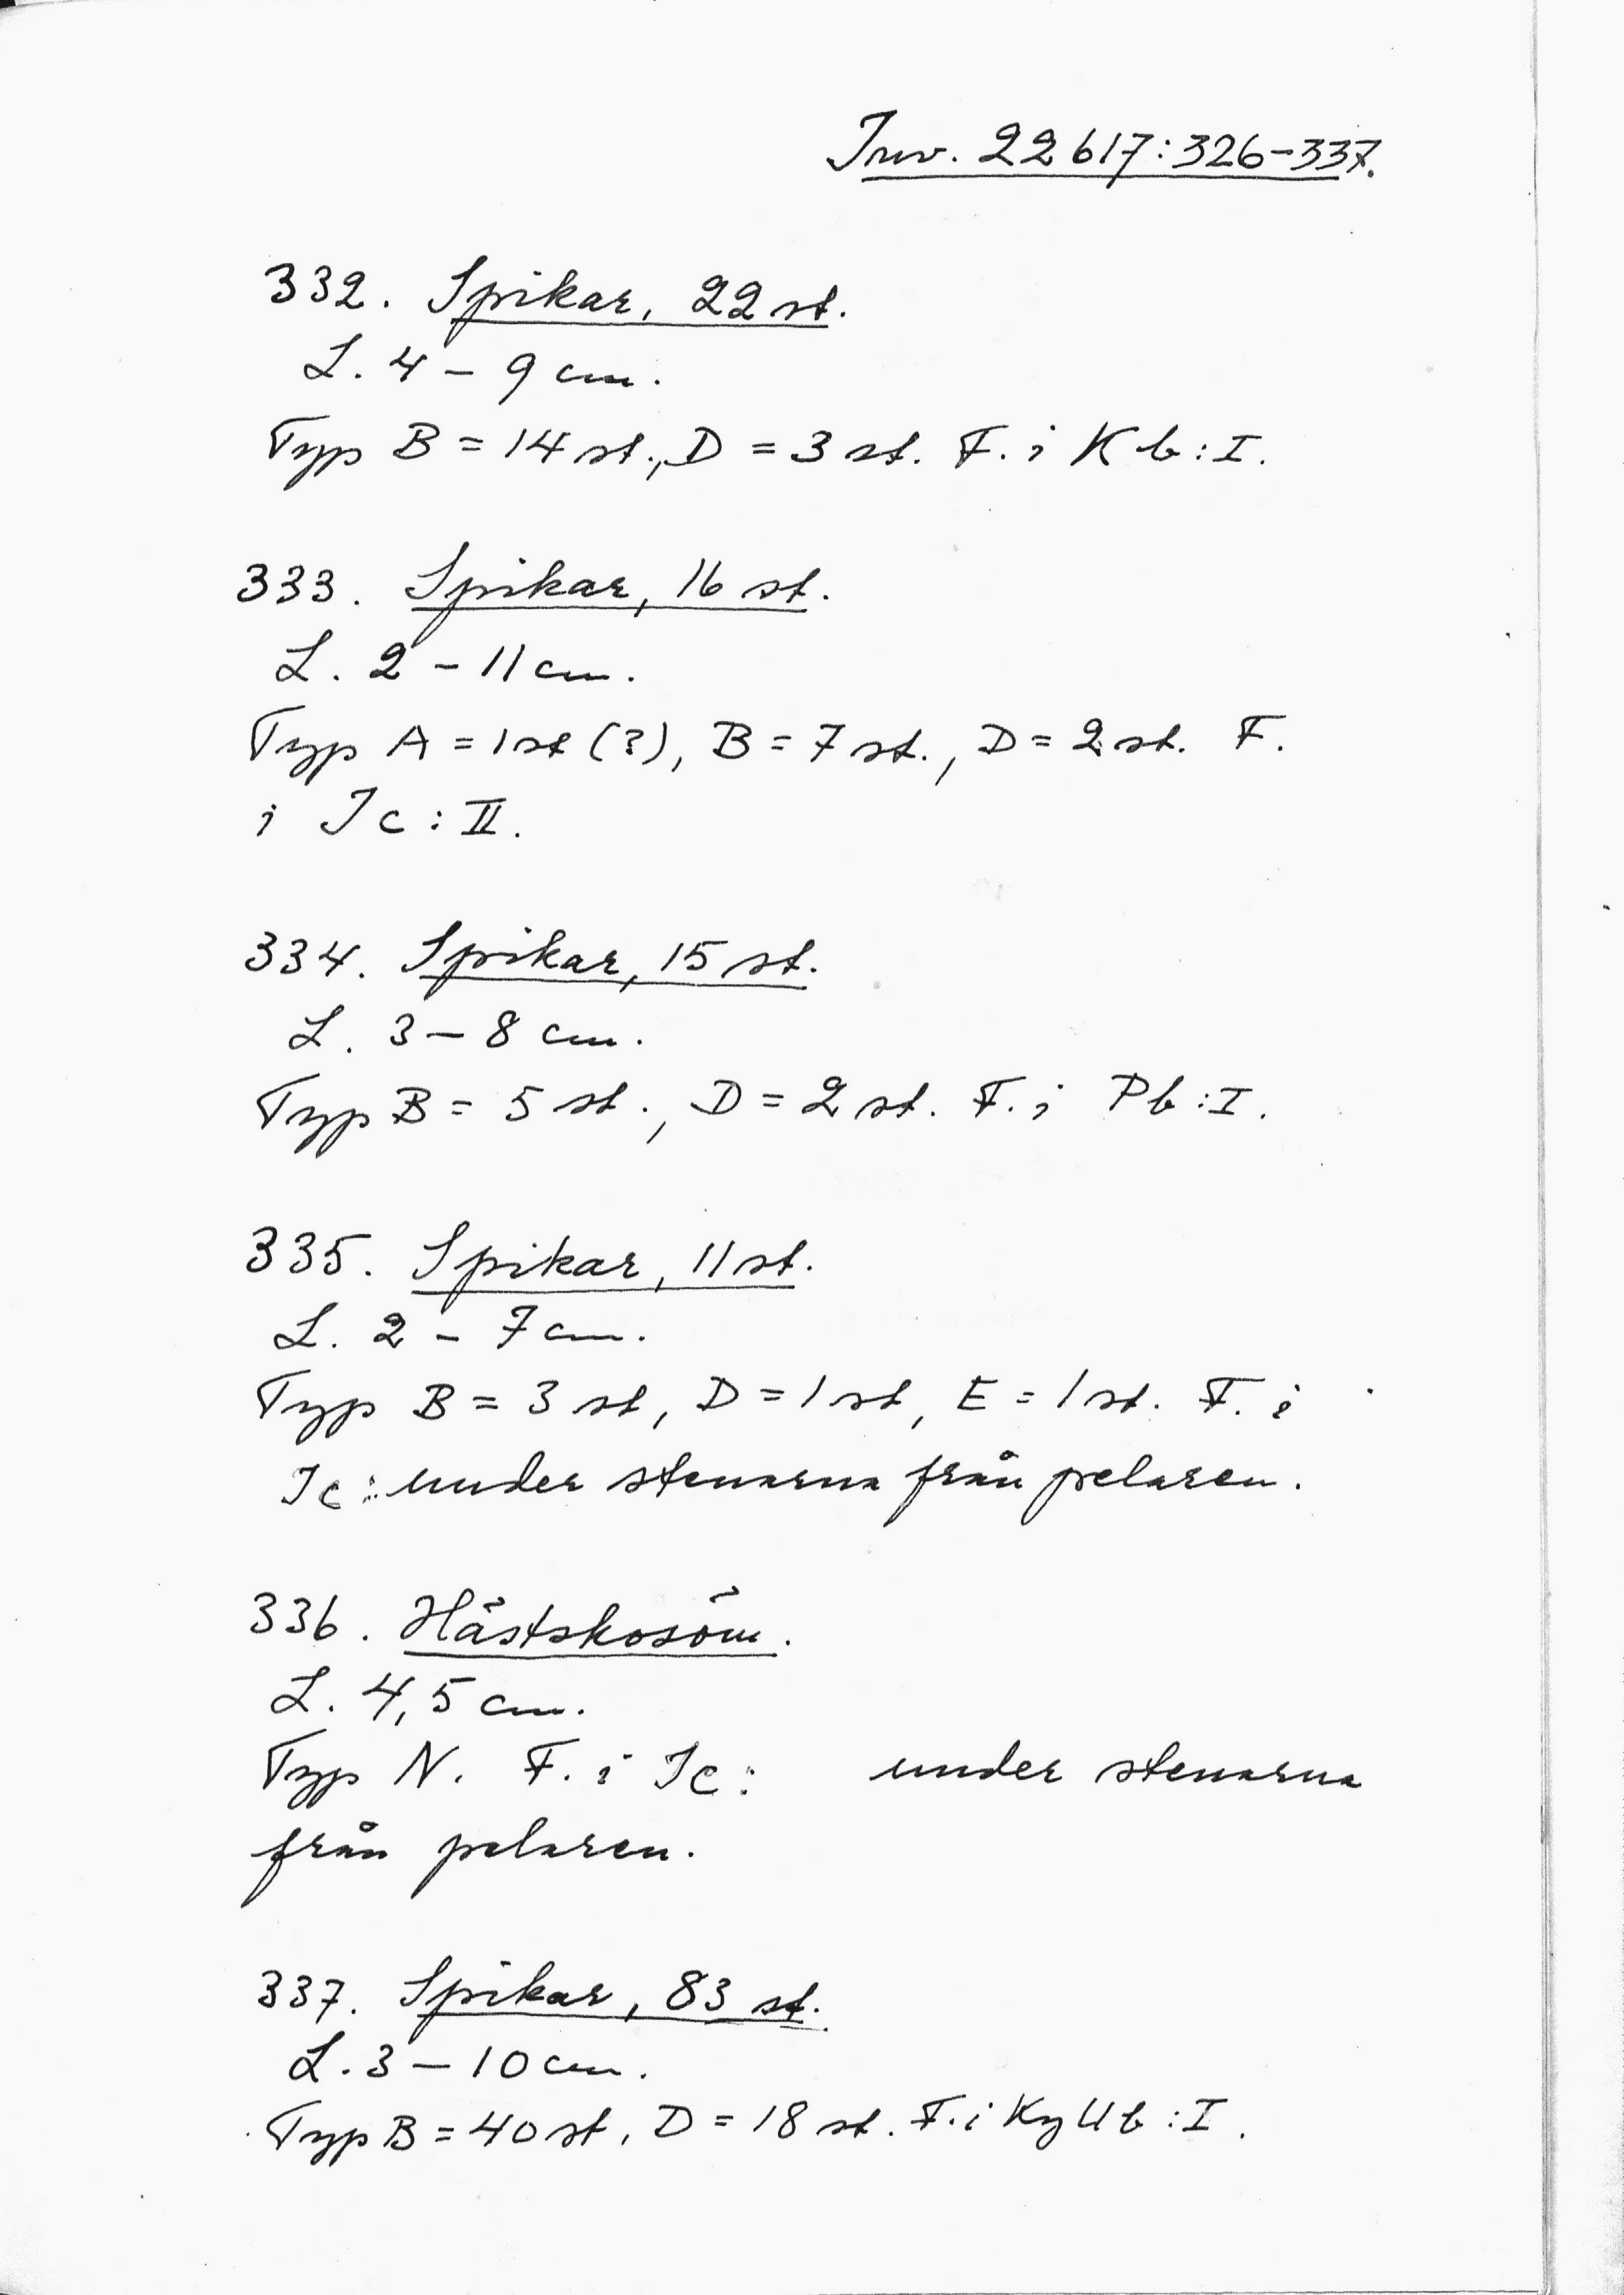 Inv. 22617:326-337.
332. Spikar, 22 st.
L. 4 - 9 cm.
Typ B = 14 st., D = 3 st. F. i Kb:I.
333. Spikar, 16 st.
L. 2 - 11 cm.
Typ A = 1 st (?), B = 7 st., D = 2 st. F.
i Jc:II.
334. Spikar, 15 st.
L. 3 - 8 cm.
Typ B = 5 st., D = 2 st. F. i Pb:I.
335. Spikar, 11 st.
L. 2 - 7 cm.
Typ B = 3 st, D = 1 st, E = 1 st. F. i
Jc: under stenarna från pelaren.
336. Hästskosöm.
L. 4,5 cm.
Typ N. F. i Jc: under stenarna
från pelaren.
337. Spikar, 83 st.
L. 3 - 10 cm.
Typ B = 40 st, D = 18 st. F. i KyUb:I.